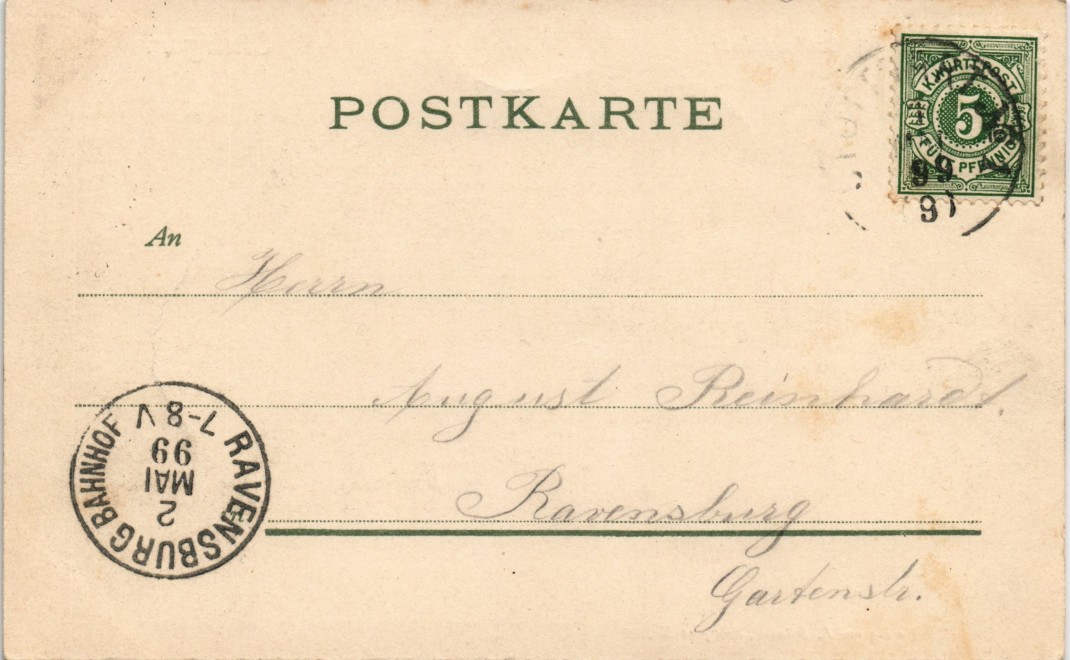 POSTKARTE
K. WÜRTT. POST
5
FÜNF PFENNIG
99
An
Herrn
August Reinhardt.
Ravensburg
Gartenstr.
RAVENSBURG BAHNHOF
2
MAI
99
7-8 V